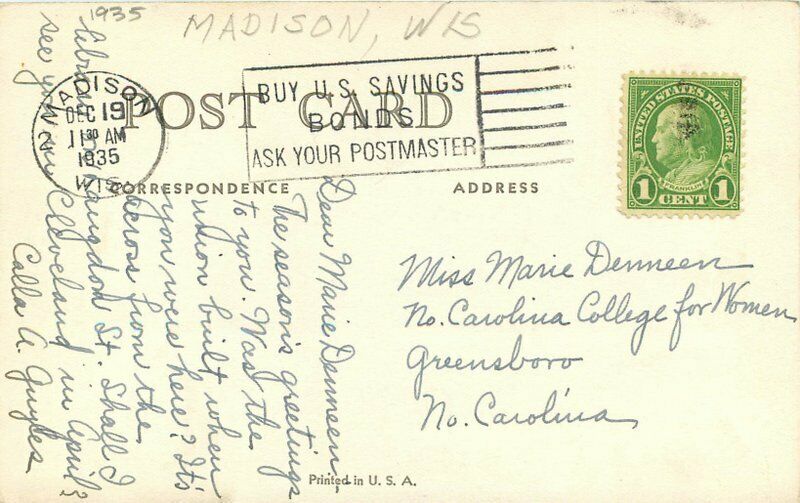 1935
MADISON, WIS
MADISON
DEC 19
11 30 AM
1935
WIS.
BUY U.S. SAVINGS
BONDS
ASK YOUR POSTMASTER
POST CARD
CORRESPONDENCE
ADDRESS
UNITED STATES POSTAGE
FRANKLIN
1 CENT 1
Dear Marie Denneen,
The season's greetings
to you. Was the
union built when
you were here? It's
across from the
library on Langdon St. Shall I
see you in Cleveland in April?
Calla A. Guyles
Miss Marie Denneen
No. Carolina College for Women
Greensboro
No. Carolina
Printed in U. S. A.